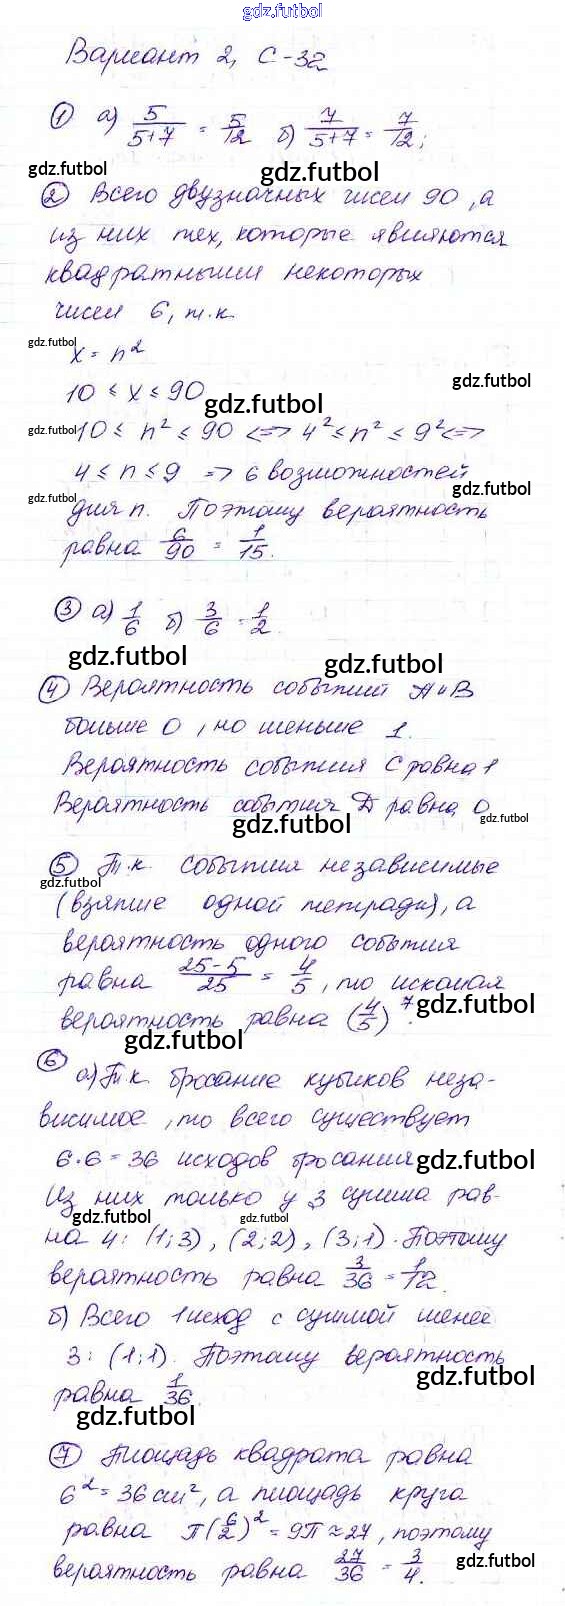 gdz.futbol
gdz.futbol
Вариант 2, С-32
1 а) 5/(5+7) = 5/12 б) 7/(5+7) = 7/12;
gdz.futbol gdz.futbol
2 Всего двузначных чисел 90, а
из них тех, которые являются
квадратными некоторых
чисел 6, т.к.
gdz.futbol
x = n²
gdz.futbol
10 ≤ x ≤ 90
gdz.futbol
gdz.futbol
10 ≤ n² ≤ 90 <=> 4² ≤ n² ≤ 9² <=>
4 ≤ n ≤ 9 => 6 возможностей
gdz.futbol gdz.futbol
для n. Поэтому вероятность
равна 6/90 = 1/15.
3 а) 1/6 б) 3/6 = 1/2.
gdz.futbol gdz.futbol
4 Вероятность событий А и В
больше 0, но меньше 1.
Вероятность события С равна 1
Вероятность события D равна 0
gdz.futbol gdz.futbol
5 Т.к. события независимые
gdz.futbol
(взятие одной тетради), а
вероятность одного события
равна (25-5)/25 = 4/5, то искомая
gdz.futbol
вероятность равна (4/5)⁷.
gdz.futbol
6 а) Т.к. бросание кубиков неза-
висимое, то всего существует
6·6 = 36 исходов бросания
gdz.futbol
Из них только у 3 сумма рав-
gdz.futbol gdz.futbol
на 4: (1;3), (2;2), (3;1). Поэтому
вероятность равна 3/36 = 1/12.
б) Всего 1 исход с суммой менее
3: (1;1). Поэтому вероятность
gdz.futbol
равна 1/36.
gdz.futbol
7 Площадь квадрата равна
6² = 36 см², а площадь круга
равна π(6/2)² = 9π ≈ 27, поэтому
вероятность равна 27/36 = 3/4.
gdz.futbol